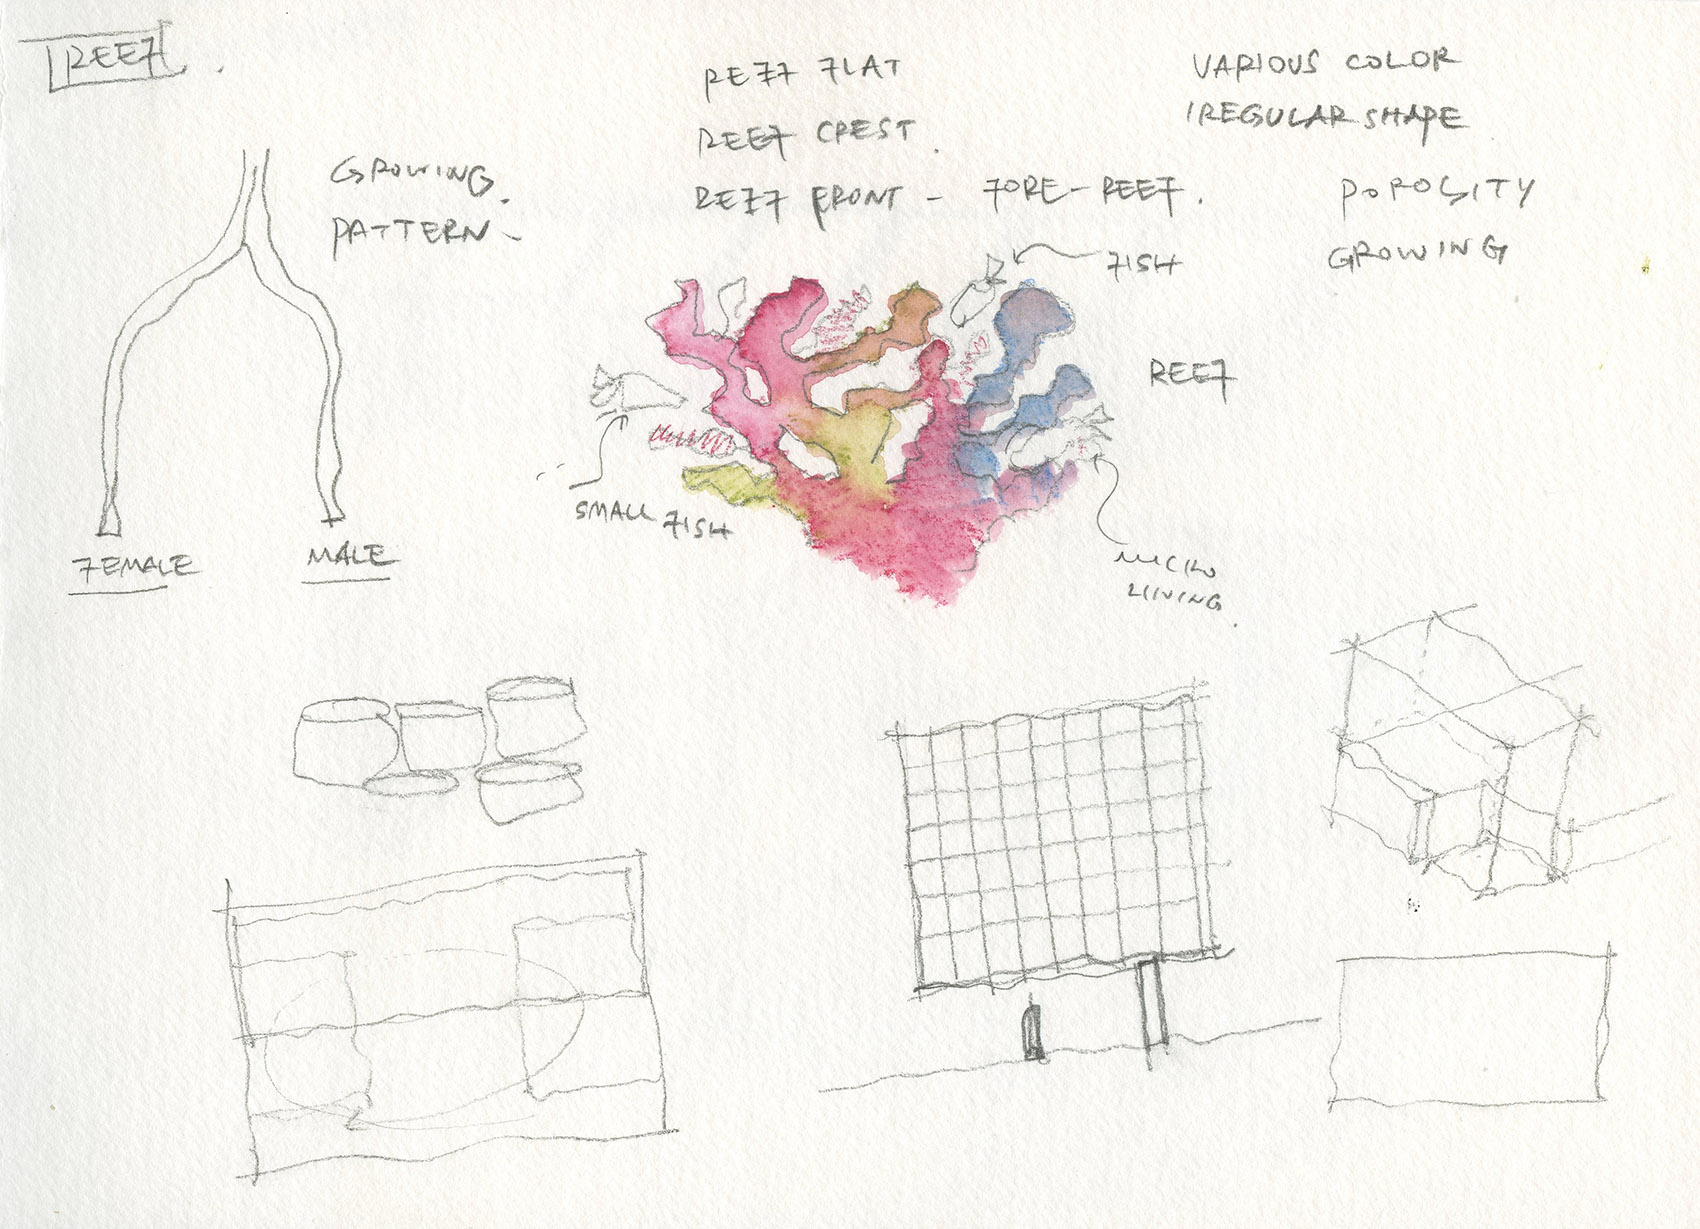 REEF
REEF FLAT
REEF CREST
REEF FRONT - FORE-REEF.
VARIOUS COLOR
IREGULAR SHAPE
POROSITY
GROWING
GROWING
PATTERN
FISH
REEF
SMALL FISH
MICRO
LIVING
FEMALE
MALE